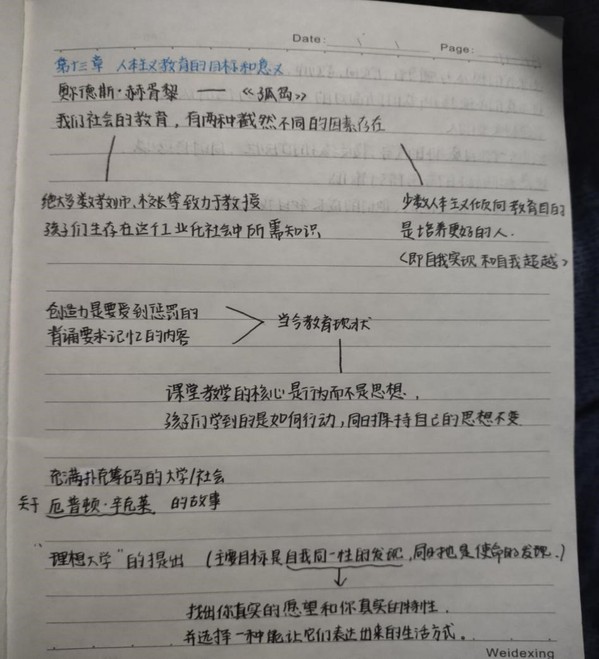 Date: Page:
第十三章 人本主义教育的目标和意义
奥尔德斯·赫胥黎 —— 《孤岛》
我们社会的教育，有两种截然不同的因素存在
绝大多数教师、校长等致力于教授
孩子们生存在这个工业化社会中所需知识
少数人本主义倾向教育目的
是培养更好的人.
<即自我实现和自我超越>
创造力是要受到惩罚的
背诵要求记忆的内容
当今教育现状
课堂教学的核心是行为而不是思想.
孩子们学到的是如何行动,同时保持自己的思想不变
充满扑克筹码的大学/社会
关于 厄普顿·辛克莱 的故事
"理想大学"的提出 (主要目标是自我同一性的发现,同时也是使命的发现.)
找出你真实的愿望和你真实的特性.
并选择一种能让它们表达出来的生活方式.
Weidexing